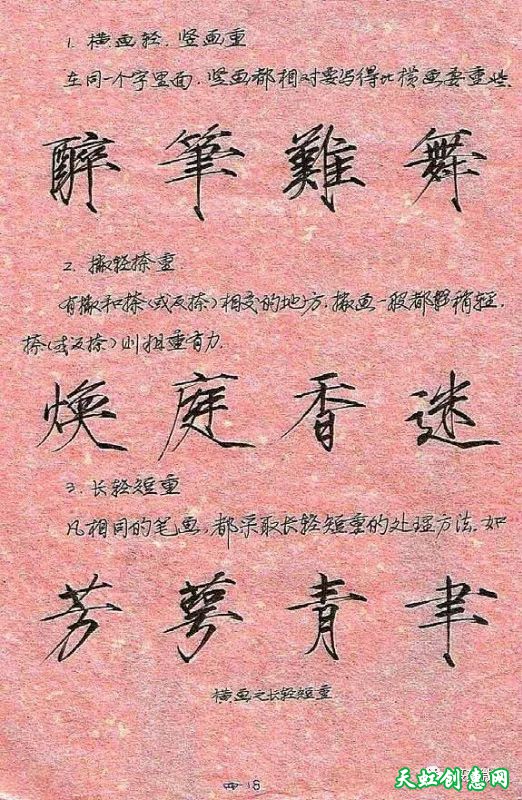 1. 横画轻、竖画重
在同一个字里面,竖画都相对要写得比横画要重些.
醉筆難舞
2. 撇轻捺重
有撇和捺(或反捺)相交的地方,撇画一般都稍轻,
捺(或反捺)则粗重有力.
焕庭香迷
3. 长轻短重
凡相同的笔画,都采取长轻短重的处理方法.如
芳萼青
横画之长轻短重
四-16
天虹创惠网